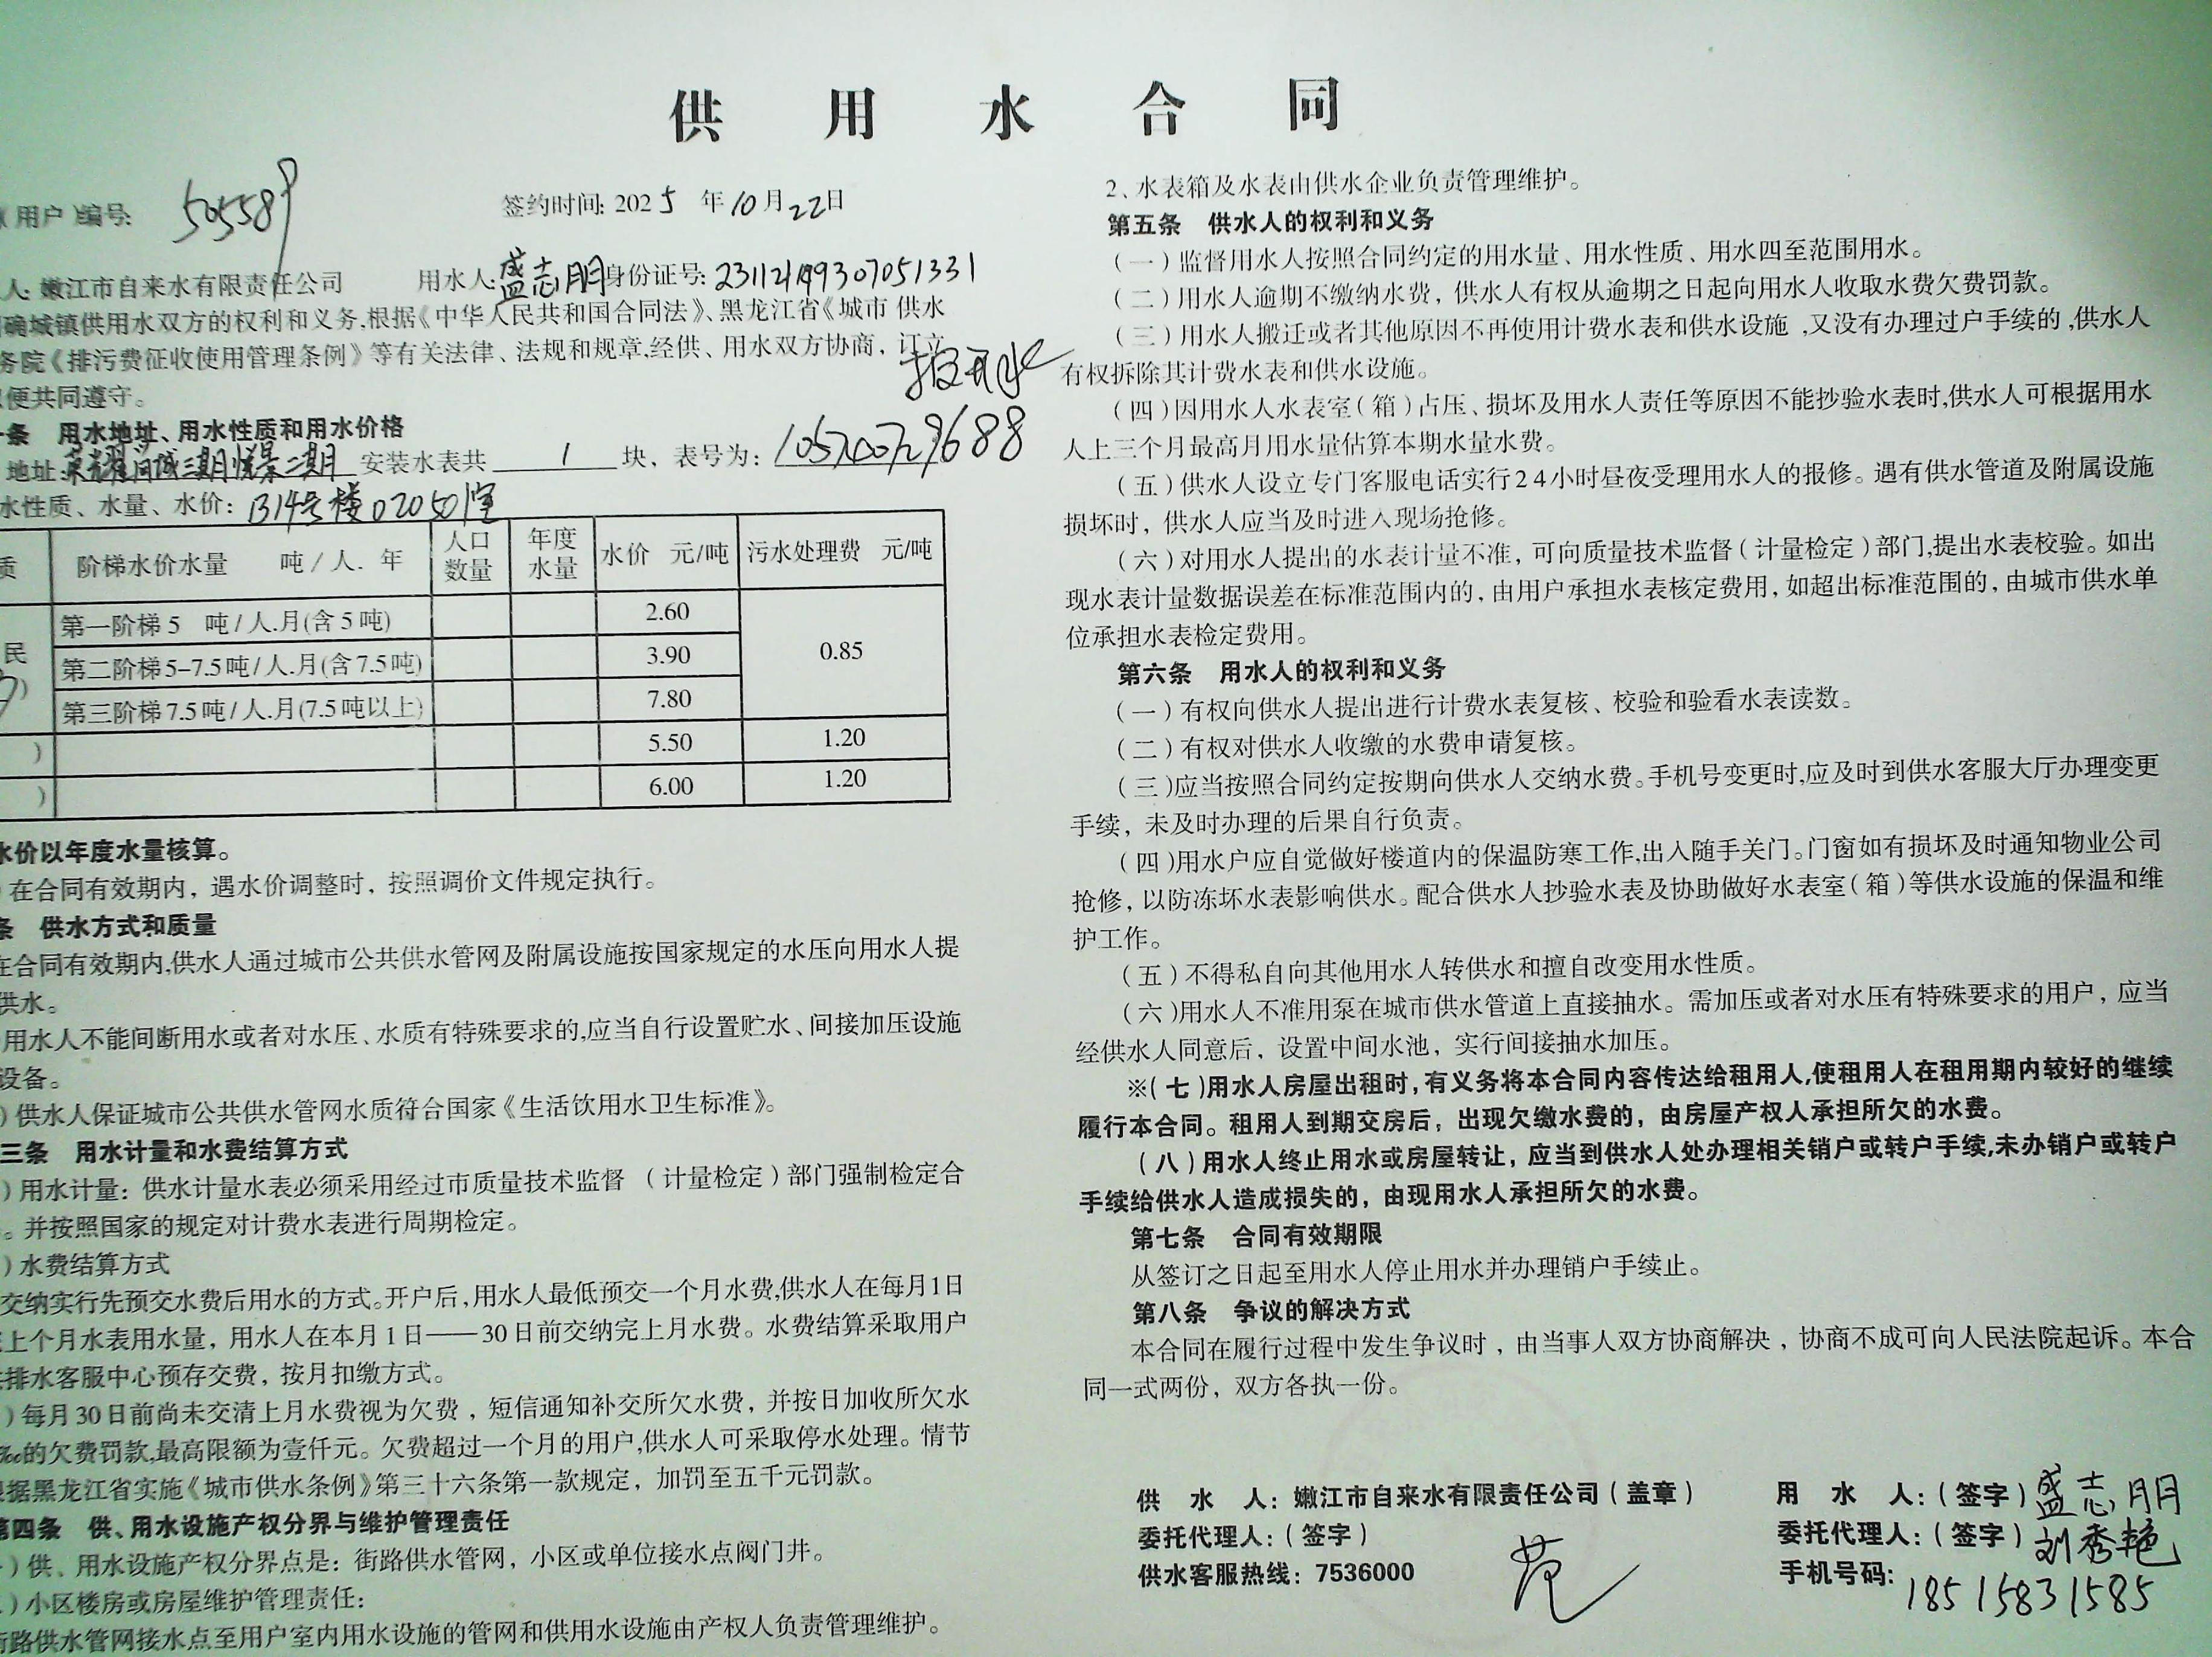 供 用 水 合 同
（用户）编号: 505589
签约时间: 2025 年10月22日
人: 嫩江市自来水有限责任公司 用水人: 盛志朋 身份证号: 231121199307051331
确城镇供用水双方的权利和义务,根据《中华人民共和国合同法》、黑龙江省《城市 供水
务院《排污费征收使用管理条例》等有关法律、法规和规章,经供、用水双方协商，订立
便共同遵守。
报开水
条 用水地址、用水性质和用水价格
地址: 荣耀问城三期悦景二期 安装水表共 1 块，表号为:
水性质、水量、水价: B14号楼020501室
质 阶梯水价水量 吨/人. 年 人口数量 年度水量 水价 元/吨 污水处理费 元/吨
民 第一阶梯 5 吨/人.月(含 5 吨) 2.60 0.85
第二阶梯 5-7.5 吨/人.月(含 7.5 吨) 3.90
第三阶梯 7.5 吨/人.月(7.5 吨以上) 7.80
) 5.50 1.20
) 6.00 1.20
水价以年度水量核算。
在合同有效期内，遇水价调整时，按照调价文件规定执行。
条 供水方式和质量
在合同有效期内,供水人通过城市公共供水管网及附属设施按国家规定的水压向用水人提
供水。
用水人不能间断用水或者对水压、水质有特殊要求的,应当自行设置贮水、间接加压设施
设备。
)供水人保证城市公共供水管网水质符合国家《生活饮用水卫生标准》。
三条 用水计量和水费结算方式
)用水计量：供水计量水表必须采用经过市质量技术监督 （计量检定）部门强制检定合
。并按照国家的规定对计费水表进行周期检定。
)水费结算方式
交纳实行先预交水费后用水的方式。开户后,用水人最低预交一个月水费,供水人在每月1日
上个月水表用水量，用水人在本月 1 日——30 日前交纳完上月水费。水费结算采取用户
排水客服中心预存交费，按月扣缴方式。
)每月 30 日前尚未交清上月水费视为欠费，短信通知补交所欠水费，并按日加收所欠水
‰的欠费罚款,最高限额为壹仟元。欠费超过一个月的用户,供水人可采取停水处理。情节
根据黑龙江省实施《城市供水条例》第三十六条第一款规定，加罚至五千元罚款。
第四条 供、用水设施产权分界与维护管理责任
)供、用水设施产权分界点是：街路供水管网，小区或单位接水点阀门井。
)小区楼房或房屋维护管理责任：
街路供水管网接水点至用户室内用水设施的管网和供用水设施由产权人负责管理维护。
2、水表箱及水表由供水企业负责管理维护。
第五条 供水人的权利和义务
（一）监督用水人按照合同约定的用水量、用水性质、用水四至范围用水。
（二）用水人逾期不缴纳水费，供水人有权从逾期之日起向用水人收取水费欠费罚款。
（三）用水人搬迁或者其他原因不再使用计费水表和供水设施 ,又没有办理过户手续的 ,供水人
有权拆除其计费水表和供水设施。
（四）因用水人水表室（箱）占压、损坏及用水人责任等原因不能抄验水表时,供水人可根据用水
人上三个月最高月用水量估算本期水量水费。
（五）供水人设立专门客服电话实行24小时昼夜受理用水人的报修。遇有供水管道及附属设施
损坏时，供水人应当及时进入现场抢修。
（六）对用水人提出的水表计量不准，可向质量技术监督（计量检定）部门,提出水表校验。如出
现水表计量数据误差在标准范围内的，由用户承担水表核定费用，如超出标准范围的，由城市供水单
位承担水表检定费用。
第六条 用水人的权利和义务
（一）有权向供水人提出进行计费水表复核、校验和验看水表读数。
（二）有权对供水人收缴的水费申请复核。
（三）应当按照合同约定按期向供水人交纳水费。手机号变更时,应及时到供水客服大厅办理变更
手续，未及时办理的后果自行负责。
（四）用水户应自觉做好楼道内的保温防寒工作,出入随手关门。门窗如有损坏及时通知物业公司
抢修，以防冻坏水表影响供水。配合供水人抄验水表及协助做好水表室（箱）等供水设施的保温和维
护工作。
（五）不得私自向其他用水人转供水和擅自改变用水性质。
（六）用水人不准用泵在城市供水管道上直接抽水。需加压或者对水压有特殊要求的用户，应当
经供水人同意后，设置中间水池，实行间接抽水加压。
※（七）用水人房屋出租时,有义务将本合同内容传达给租用人,使租用人在租用期内较好的继续
履行本合同。租用人到期交房后，出现欠缴水费的，由房屋产权人承担所欠的水费。
（八）用水人终止用水或房屋转让，应当到供水人处办理相关销户或转户手续,未办销户或转户
手续给供水人造成损失的，由现用水人承担所欠的水费。
第七条 合同有效期限
从签订之日起至用水人停止用水并办理销户手续止。
第八条 争议的解决方式
本合同在履行过程中发生争议时，由当事人双方协商解决，协商不成可向人民法院起诉。本合
同一式两份，双方各执一份。
供 水 人：嫩江市自来水有限责任公司（盖章）
委托代理人：（签字）
供水客服热线：7536000
用 水 人：（签字）盛志朋
委托代理人：（签字）刘秀艳
手机号码: 18515831585